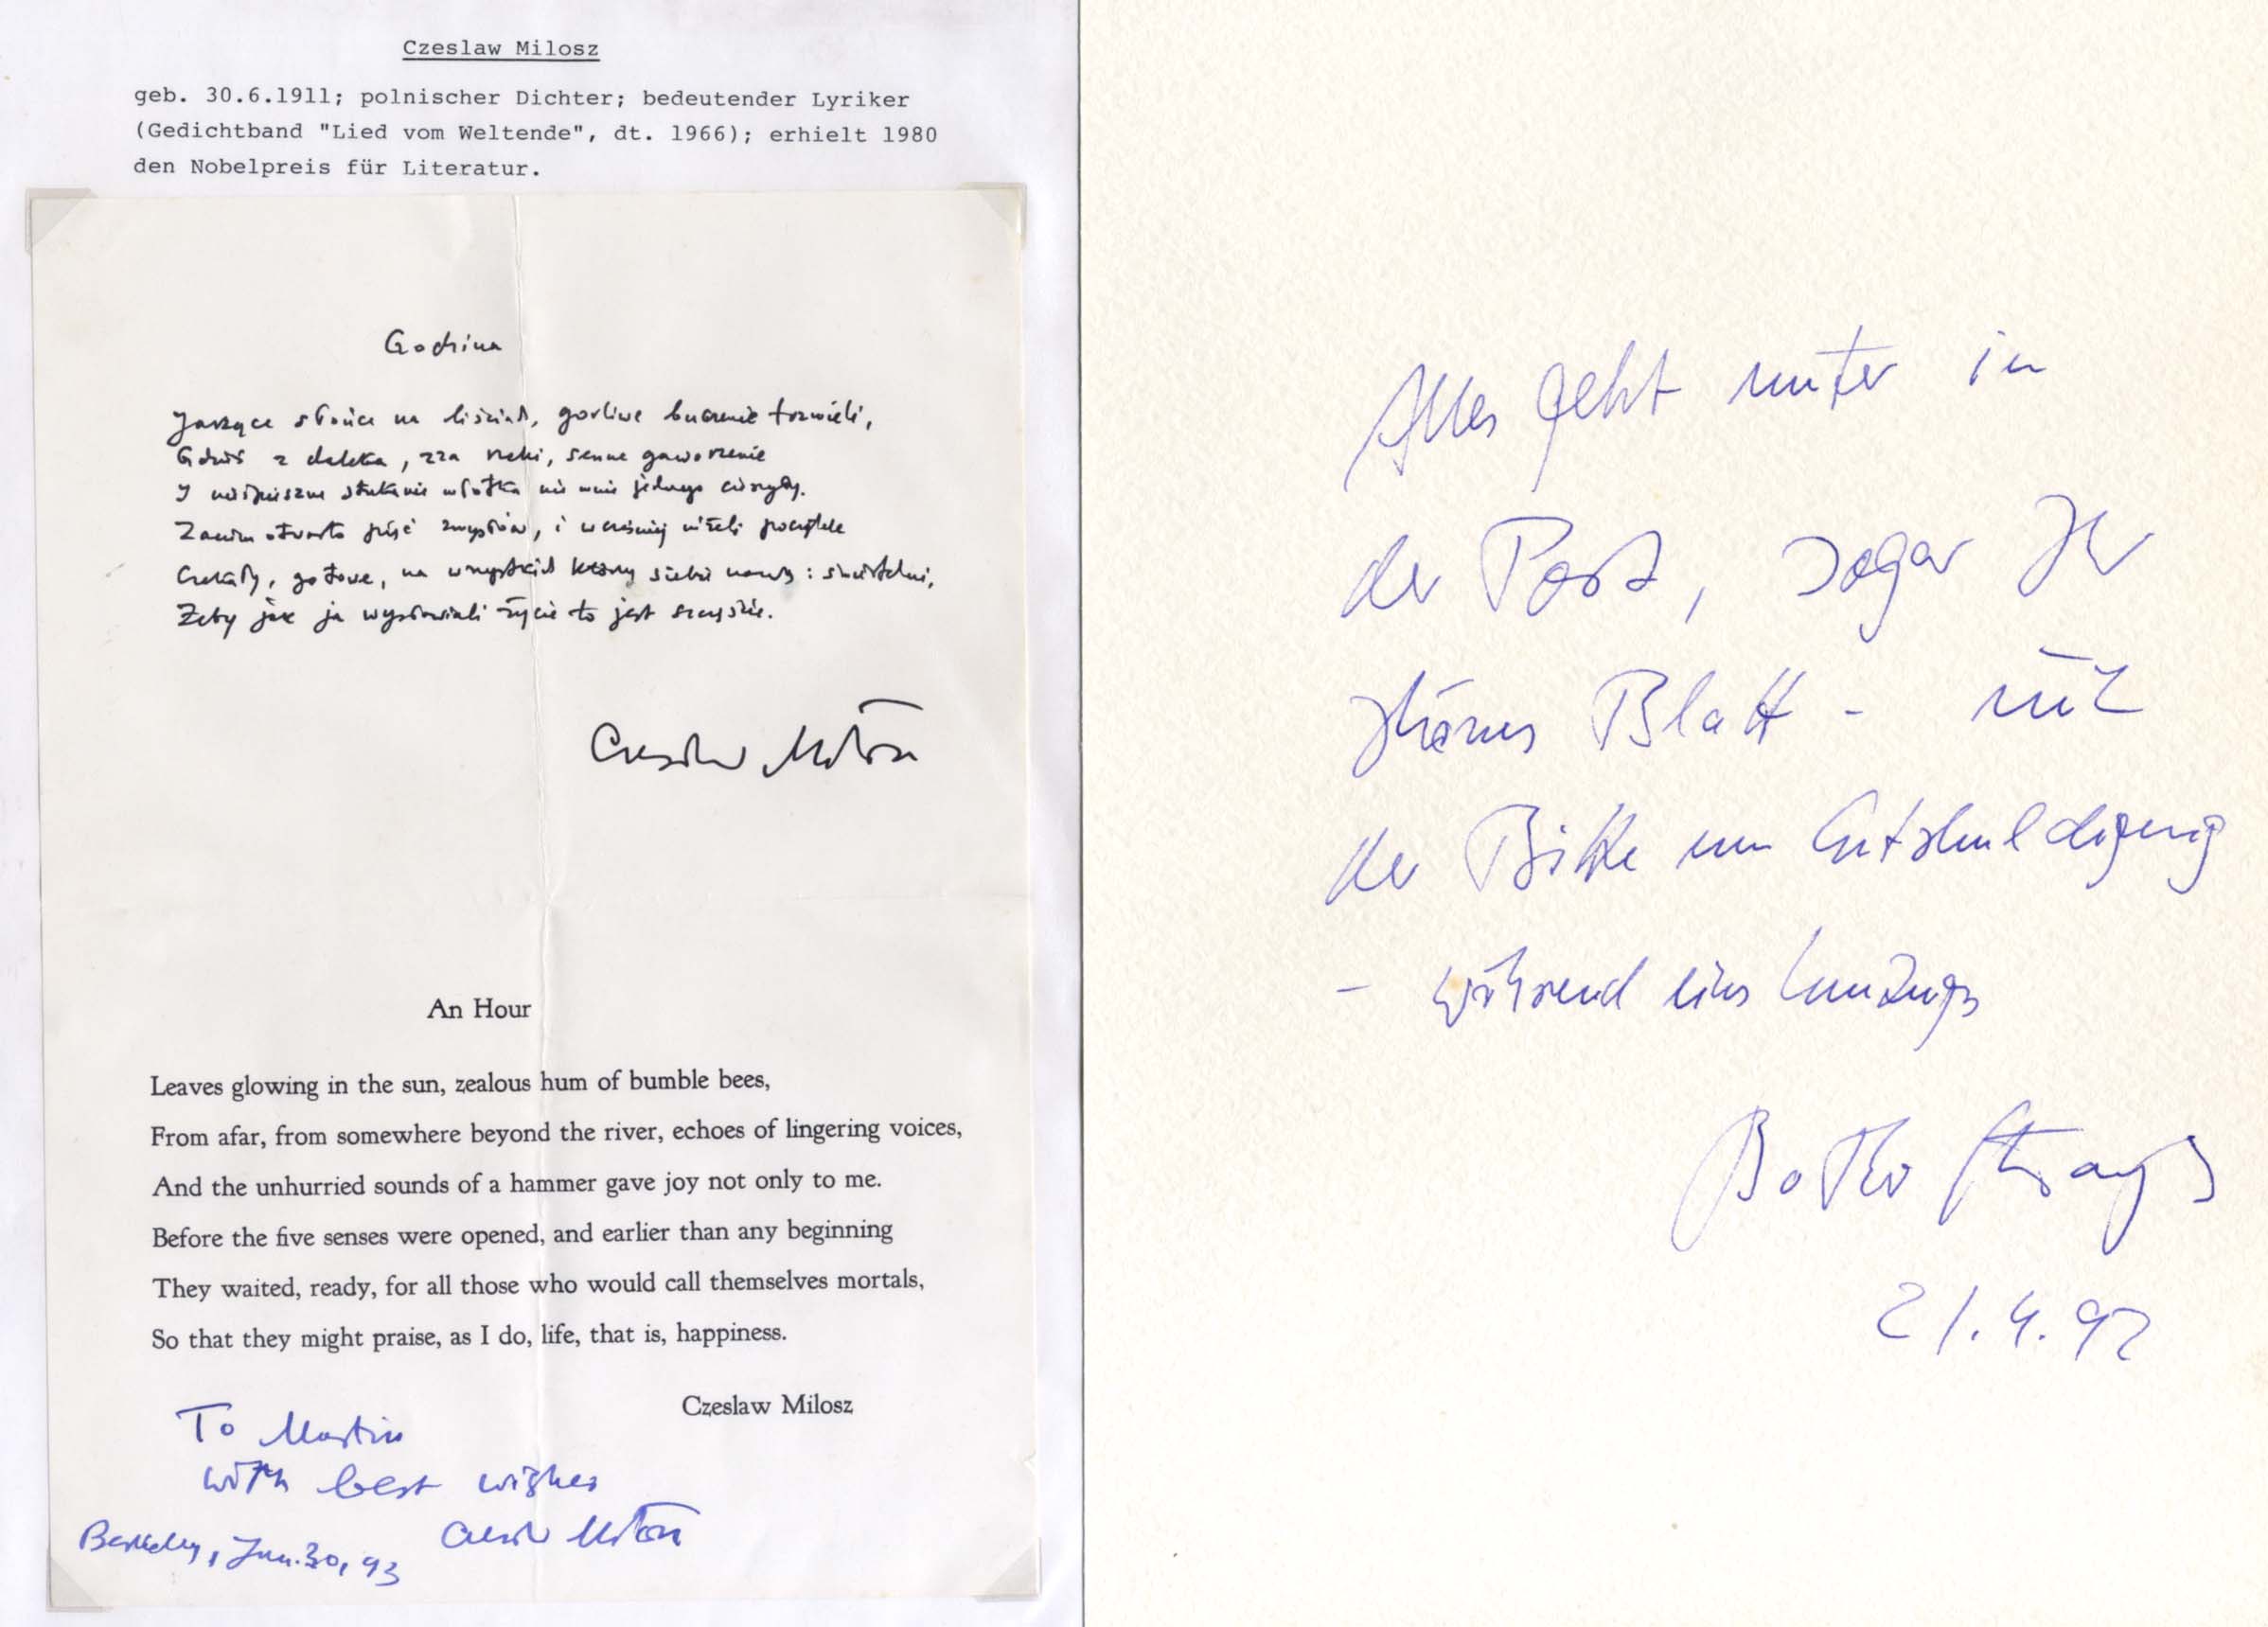 Czeslaw Milosz
geb. 30.6.1911; polnischer Dichter; bedeutender Lyriker
(Gedichtband "Lied vom Weltende", dt. 1966); erhielt 1980
den Nobelpreis für Literatur.
Godzina
Jarzące słońce na liściach, gorliwe buczenie trzmieli,
Gdzieś z daleka, zza rzeki, senne gaworzenie
I nieśpieszne stukanie młotka nie mnie jednego cieszyły.
Zanim otwarto pięć zmysłów, i wcześniej niżeli początek
Czekały, gotowe, na wszystkich którzy siebie nazwą: śmiertelni,
Żeby jak ja wysławiali życie to jest szczęście.
Czesław Miłosz
An Hour
Leaves glowing in the sun, zealous hum of bumble bees,
From afar, from somewhere beyond the river, echoes of lingering voices,
And the unhurried sounds of a hammer gave joy not only to me.
Before the five senses were opened, and earlier than any beginning
They waited, ready, for all those who would call themselves mortals,
So that they might praise, as I do, life, that is, happiness.
Czeslaw Milosz
To Martin
with best wishes
Czesław Miłosz
Berkeley, 30, 93
Alles geht unter in
der Post, sogar Ihr
schönes Blatt - mit
der Bitte um Entschuldigung
- während eines Umzugs
Botho Strauß
21.4.92